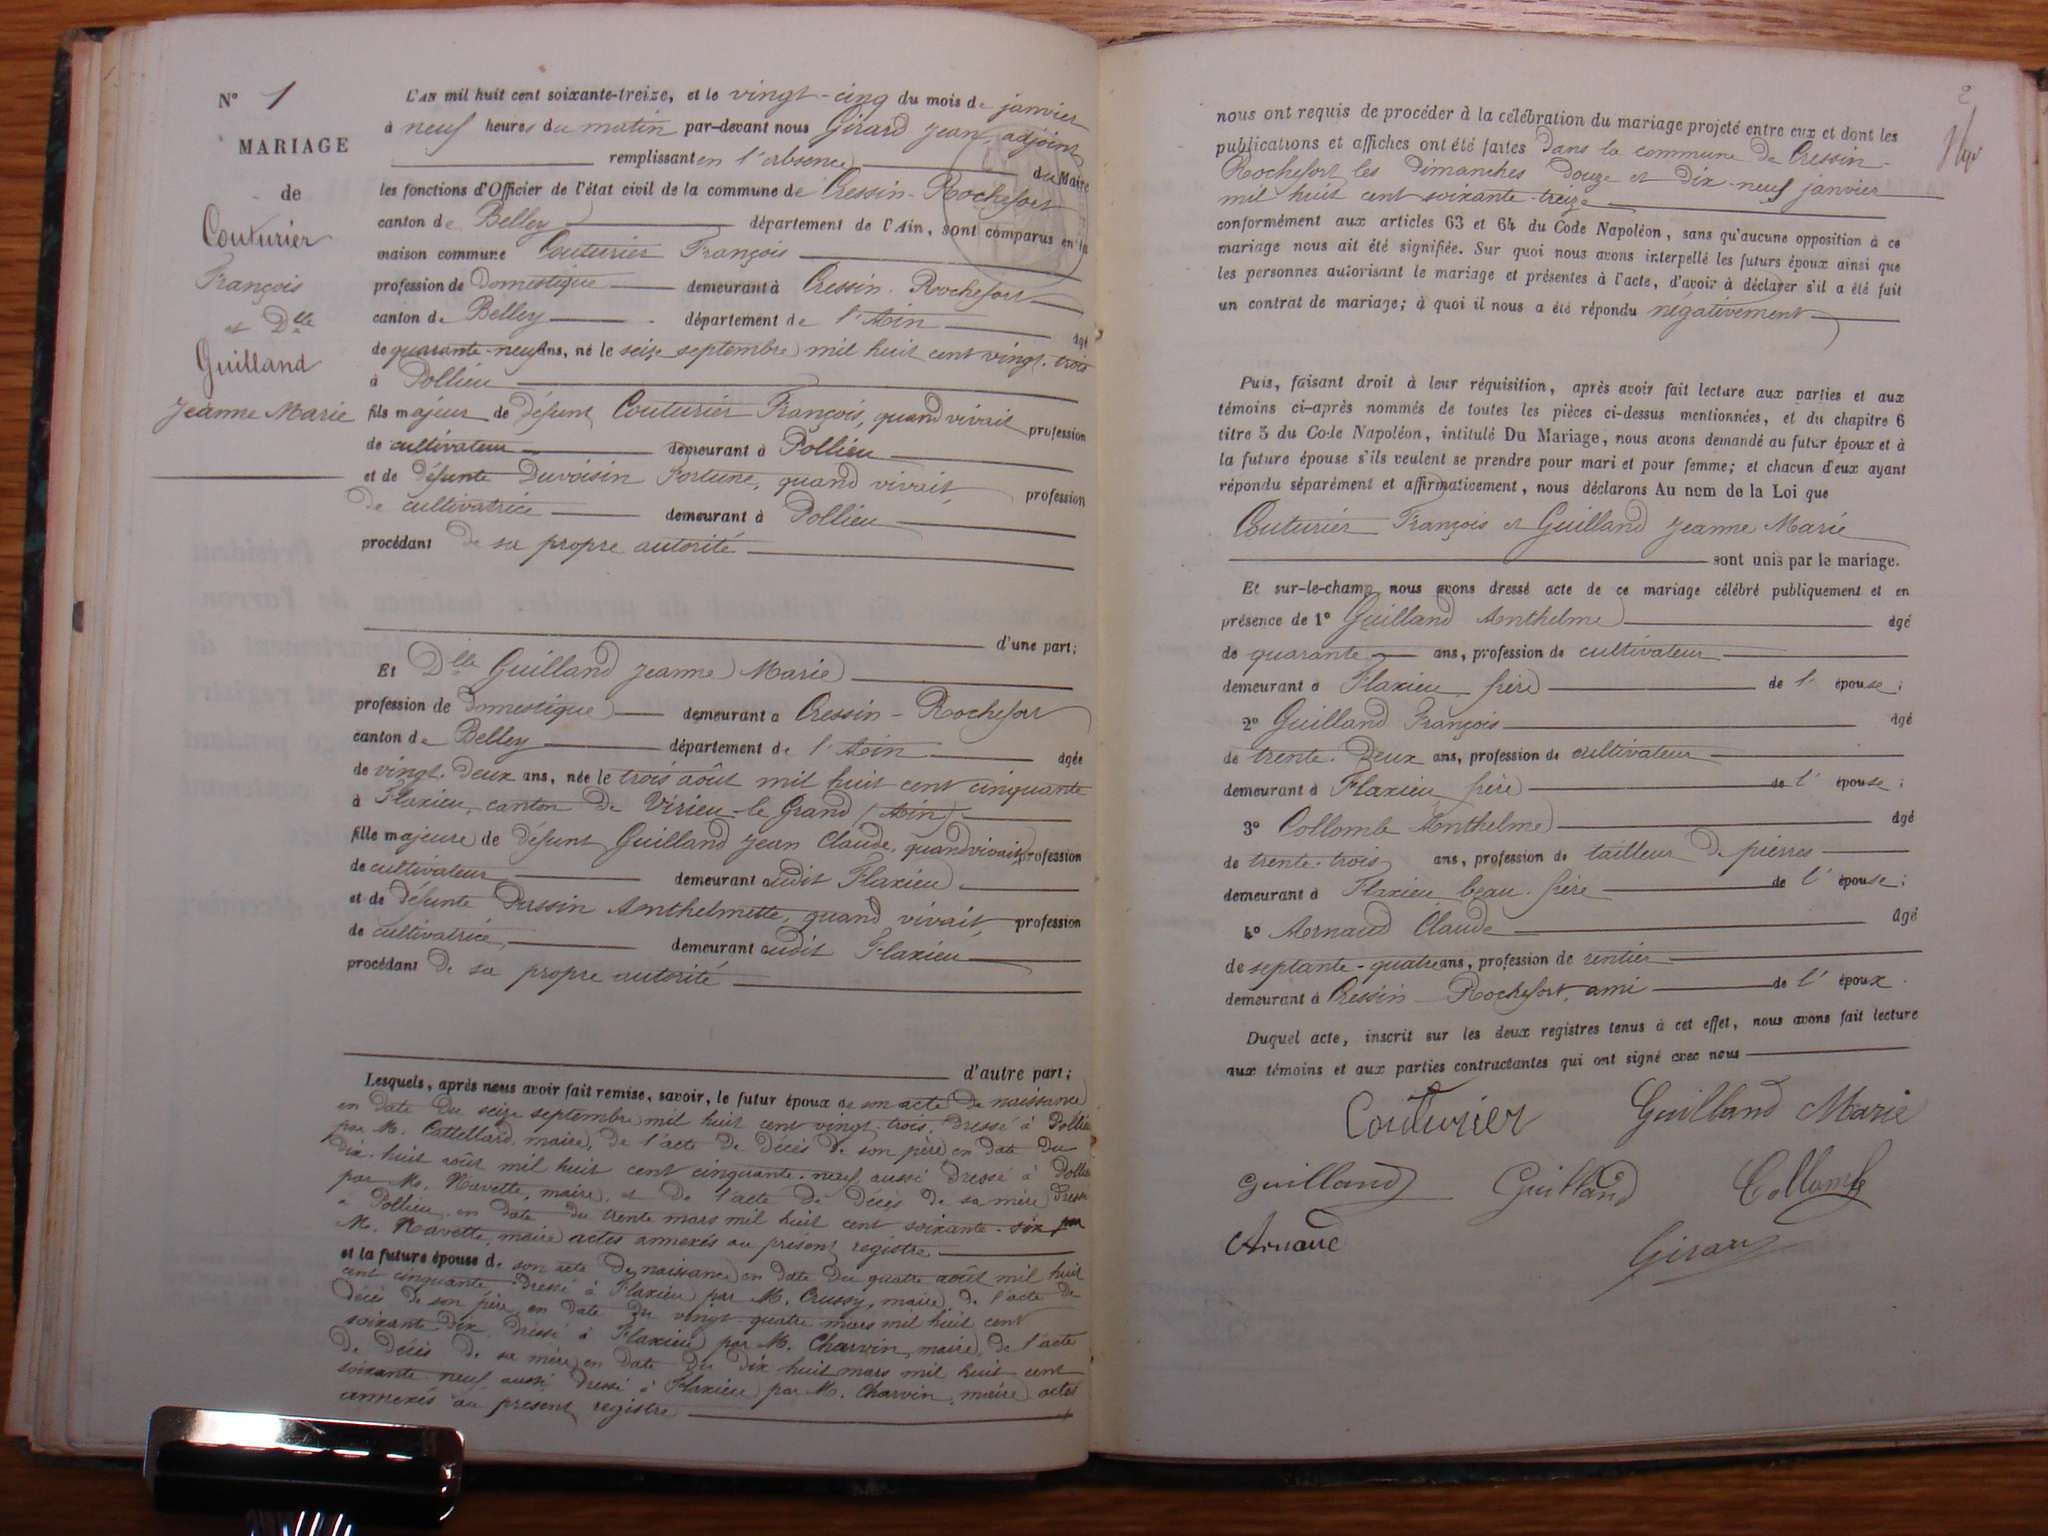 N° 1
MARIAGE
de
Couturier
François
et Dlle
Guilland
Jeanne Marie
L'AN mil huit cent soixante-treize, et le vingt-cinq du mois de janvier
à neuf heures du matin par-devant nous Girard Jean, adjoint
remplissant en l'absence du Maire
les fonctions d'Officier de l'état civil de la commune de Cressin-Rochefort
canton de Belley département de l'Ain, sont comparus en la
maison commune Couturier François
profession de Domestique demeurant à Cressin-Rochefort
canton de Belley département de l'Ain âgé
de quarante-neuf ans, né le seize septembre mil huit cent vingt-trois
à Pollieu
fils majeur de défunt Couturier François, quand vivait profession
de cultivateur demeurant à Pollieu
et de défunte Duvoisin Fortune, quand vivait, profession
de cultivatrice demeurant à Pollieu
procédant de sa propre autorité
d'une part;
Et Dlle Guilland Jeanne Marie
profession de Domestique demeurant à Cressin-Rochefort
canton de Belley département de l'Ain âgée
de vingt-deux ans, née le trois août mil huit cent cinquante
à Flaxieu, canton de Virieu-le-Grand (Ain)
fille majeure de défunt Guilland Jean Claude, quand vivait profession
de cultivateur demeurant audit Flaxieu
et de défunte Dussin Anthelmette, quand vivait, profession
de cultivatrice, demeurant audit Flaxieu
procédant de sa propre autorité
d'autre part;
Lesquels, après nous avoir fait remise, savoir, le futur époux de son acte de naissance
en date du seize septembre mil huit cent vingt-trois, dressé à Pollieu
par M. Cattellard, maire, de l'acte de décès de son père en date du
dix-huit août mil huit cent cinquante-neuf aussi dressé à Pollieu
par M. Navette, maire, et de l'acte de décès de sa mère dressé
à Pollieu en date du trente mars mil huit cent soixante-six par
M. Navette, maire, actes annexés au présent registre
et la future épouse de son acte de naissance en date du quatre août mil huit
cent cinquante dressé à Flaxieu par M. Crussy, maire, de l'acte de
décès de son père en date du vingt-quatre mars mil huit cent
soixante-dix, dressé à Flaxieu par M. Charvin, maire, de l'acte
de décès de sa mère en date du dix huit mars mil huit cent
soixante-neuf aussi dressé à Flaxieu par M. Charvin, maire, actes
annexés au présent registre
2
nous ont requis de procéder à la célébration du mariage projeté entre eux et dont les
publications et affiches ont été faites dans la commune de Cressin-
Rochefort les dimanches douze et dix-neuf janvier
mil huit cent soixante-treize
conformément aux articles 63 et 64 du Code Napoléon, sans qu'aucune opposition à ce
mariage nous ait été signifiée. Sur quoi nous avons interpellé les futurs époux ainsi que
les personnes autorisant le mariage et présentes à l'acte, d'avoir à déclarer s'il a été fait
un contrat de mariage; à quoi il nous a été répondu négativement
Puis, faisant droit à leur réquisition, après avoir fait lecture aux parties et aux
témoins ci-après nommés de toutes les pièces ci-dessus mentionnées, et du chapitre 6
titre 5 du Code Napoléon, intitulé Du Mariage, nous avons demandé au futur époux et à
la future épouse s'ils veulent se prendre pour mari et pour femme; et chacun d'eux ayant
répondu séparément et affirmativement, nous déclarons Au nom de la Loi que
Couturier François et Guilland Jeanne Marie
sont unis par le mariage.
Et sur-le-champ nous avons dressé acte de ce mariage célébré publiquement et en
présence de 1° Guilland Anthelme âgé
de quarante ans, profession de cultivateur
demeurant à Flaxieu, frère de l'épouse;
2° Guilland François âgé
de trente-deux ans, profession de cultivateur
demeurant à Flaxieu, frère de l'épouse;
3° Collomb Anthelme âgé
de trente-trois ans, profession de tailleur de pierres
demeurant à Flaxieu beau-frère de l'épouse;
4° Arnaud Claude âgé
de septante-quatre ans, profession de rentier
demeurant à Cressin-Rochefort, ami de l'époux.
Duquel acte, inscrit sur les deux registres tenus à cet effet, nous avons fait lecture
aux témoins et aux parties contractantes qui ont signé avec nous
Couturier Guilland Marie
Guilland Guilland Collomb
Arnaud
Girard